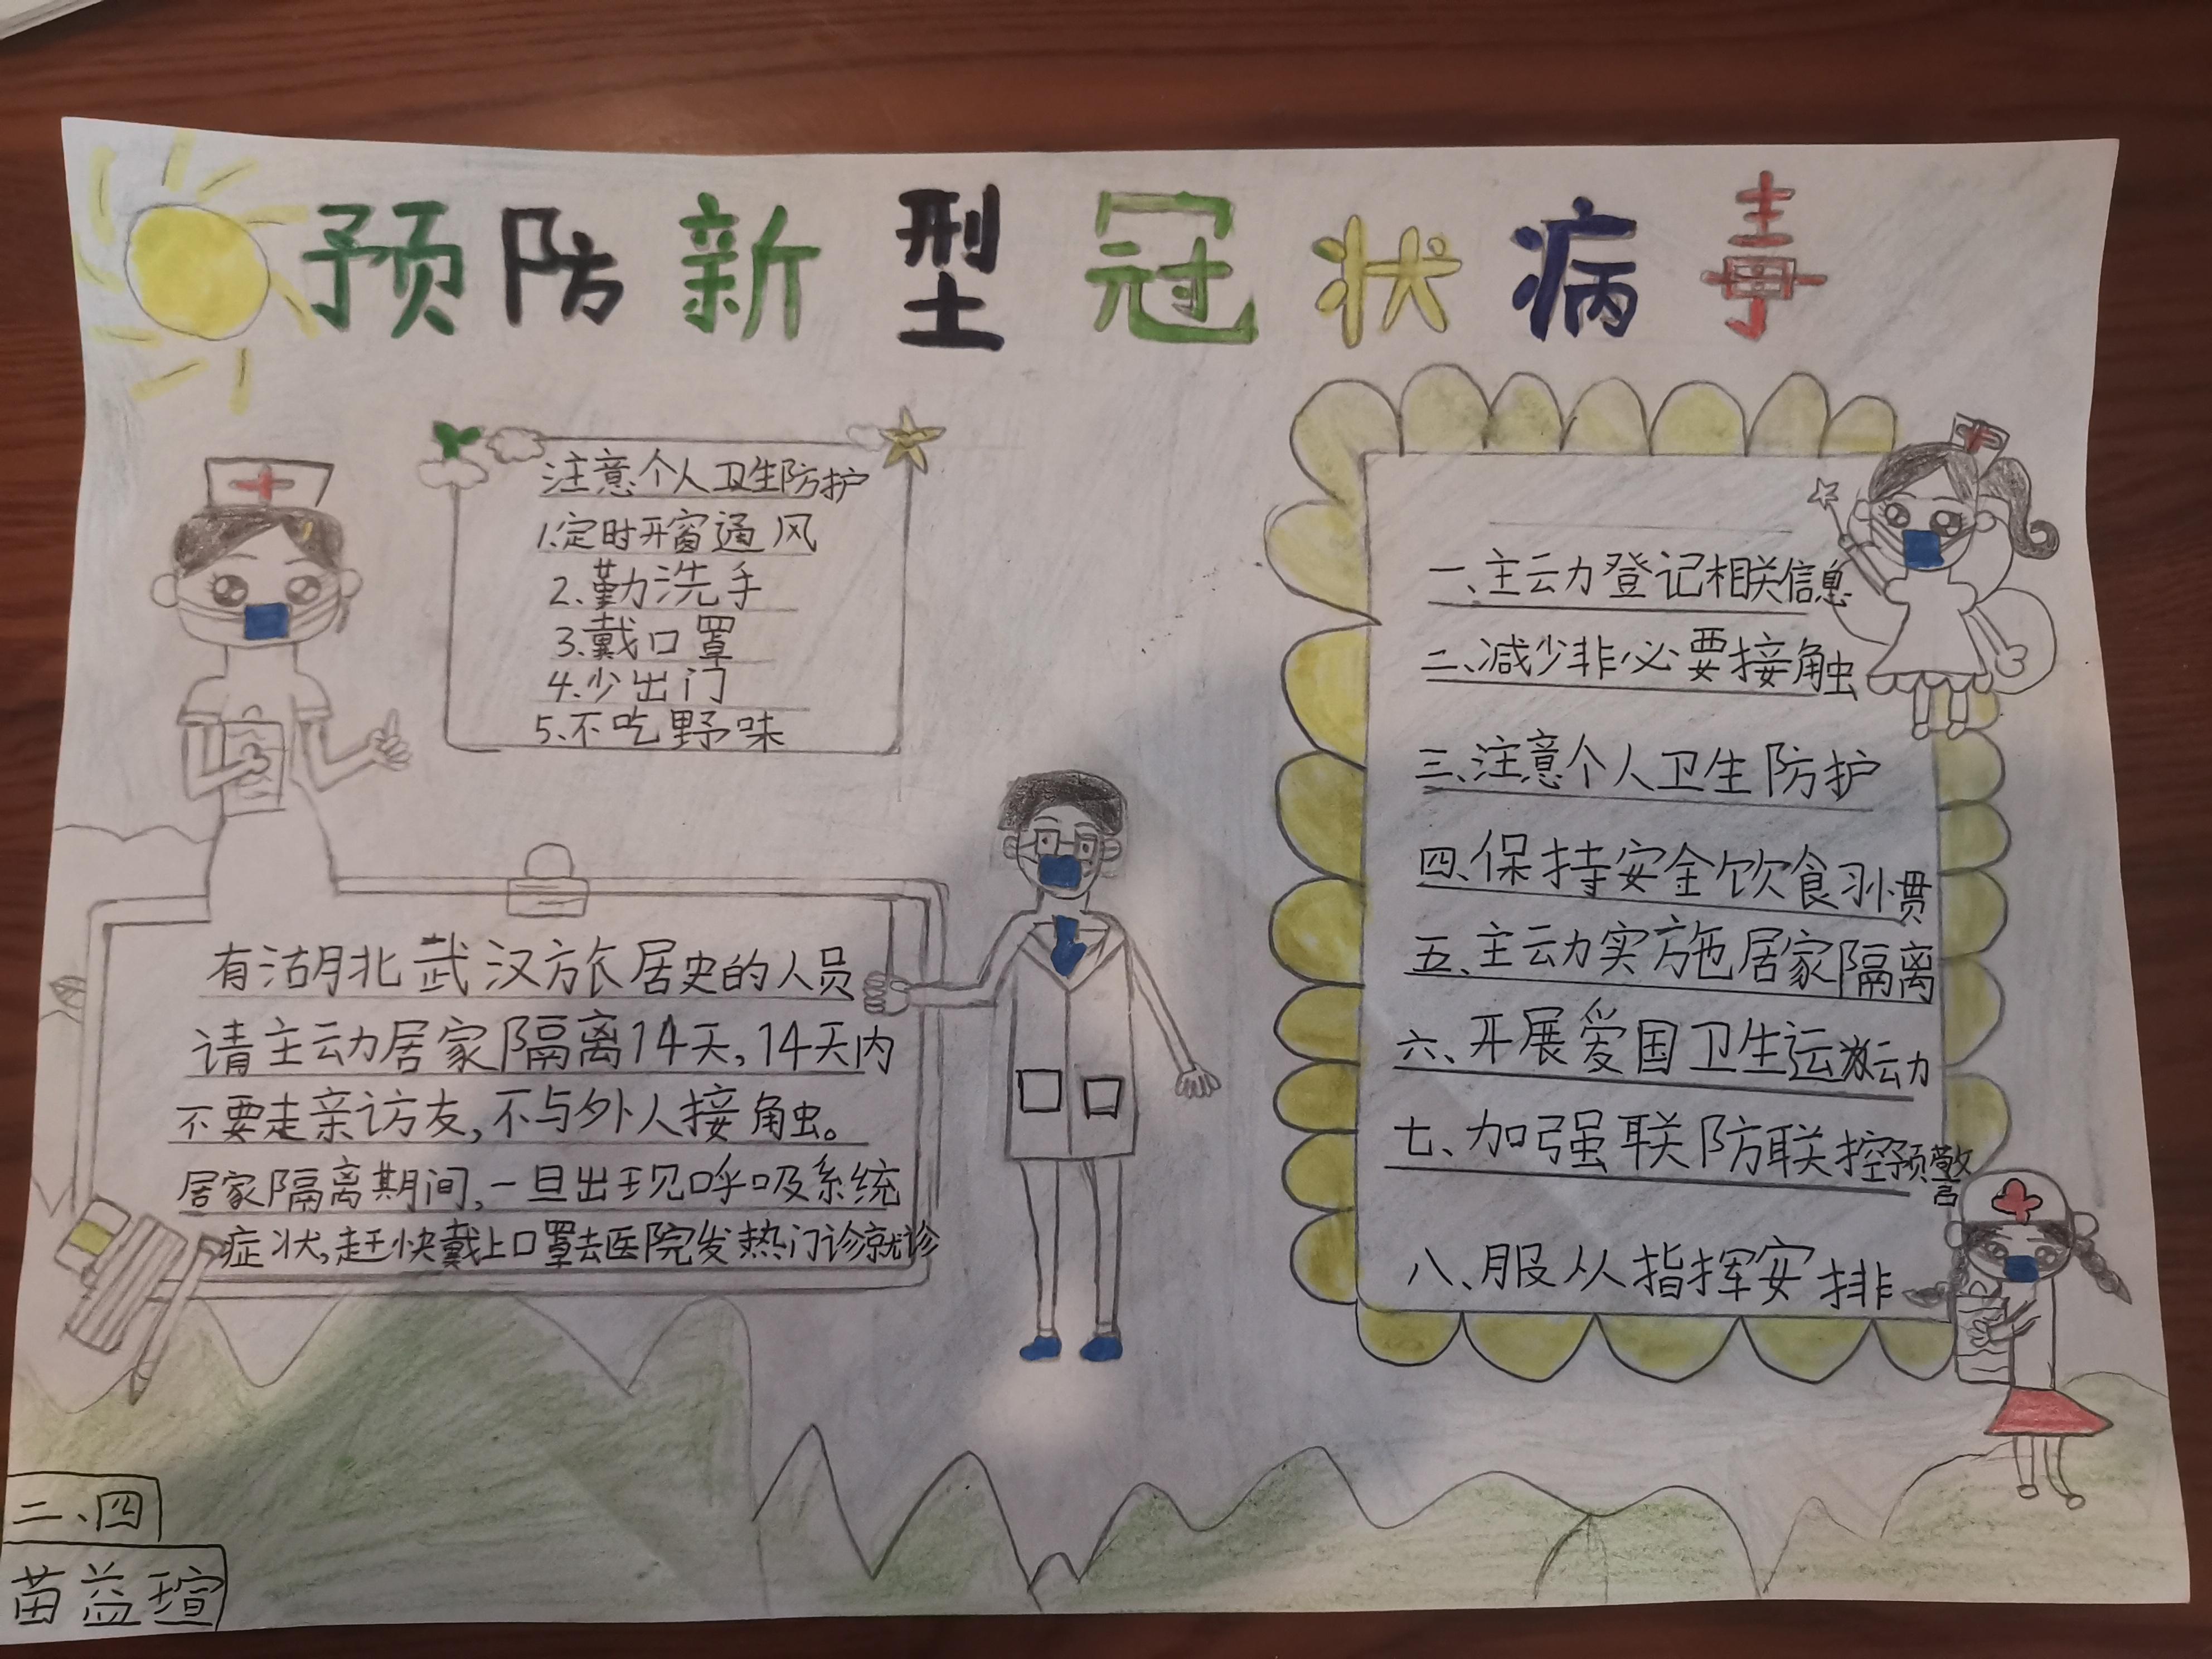 预防新型冠状病毒
注意个人卫生防护
1.定时开窗通风
2.勤洗手
3.戴口罩
4.少出门
5.不吃野味
有湖北武汉旅居史的人员
请主动居家隔离14天,14天内
不要走亲访友,不与外人接触。
居家隔离期间,一旦出现呼吸系统
症状,赶快戴上口罩去医院发热门诊就诊
一、主动登记相关信息
二、减少非必要接触
三、注意个人卫生防护
四、保持安全饮食习惯
五、主动实施居家隔离
六、开展爱国卫生运动
七、加强联防联控预警
八、服从指挥安排
二、四
苗益瑄